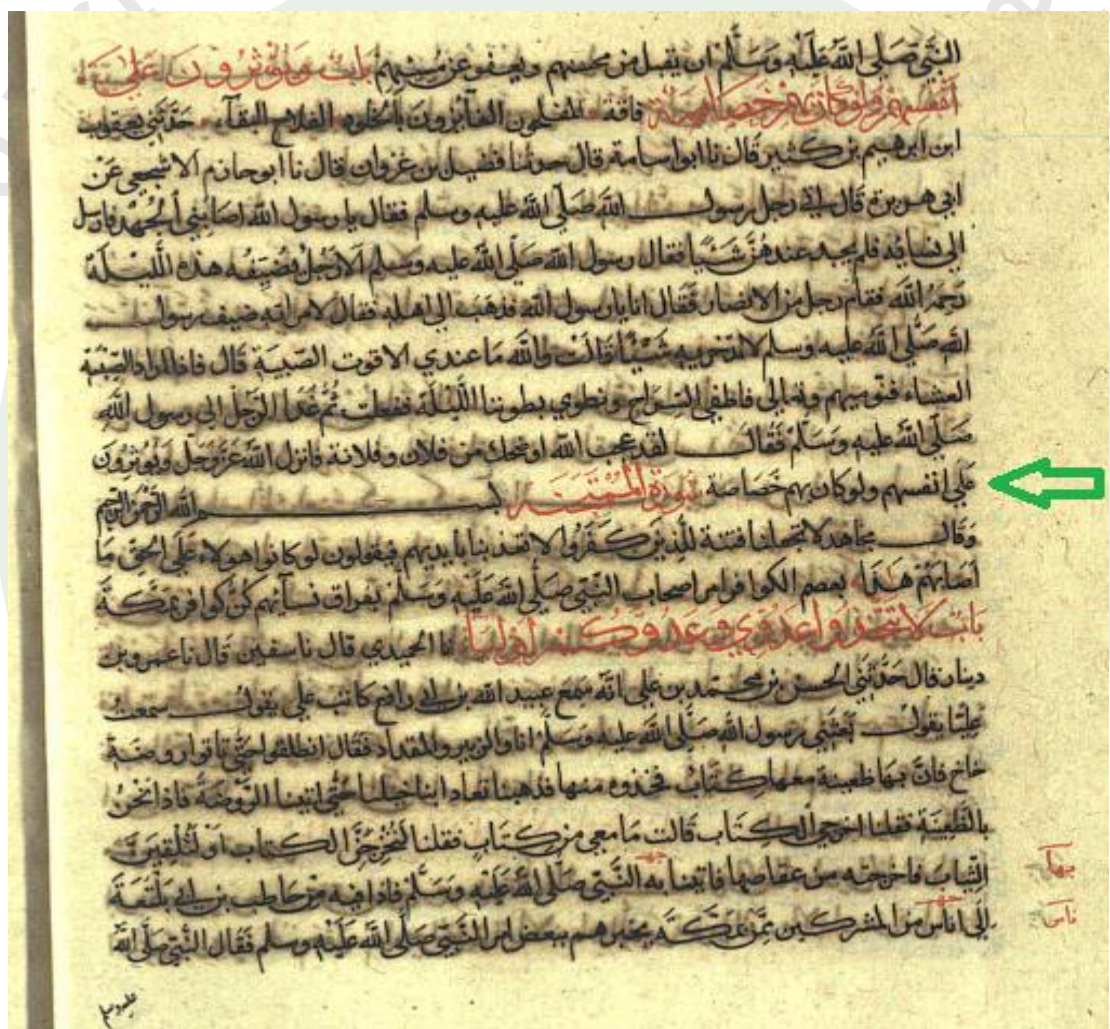 النبي صلى الله عليه وسلم ان يقبل من محسنهم ويعفو عن مسيئهم باب ويؤثرون على
أنفسهم ولو كان بهم خصاصة فاقة المفلحون الفآئزون بالخلود الفلاح البقآء حدثني يعقوب
ابن ابرهيم بن كثير قال نا ابو اسامة قال حدثنا فضيل بن غزوان قال نا ابو حازم الاشجعي عن
ابي هريرة قال اتى رجل رسول الله صلى الله عليه وسلم فقال يا رسول الله اصابني الجهد فارسل
الى نسائه فلم يجد عندهن شيأ فقال رسول الله صلى الله عليه وسلم الا رجل يضيفه هذه الليلة
رحمه الله فقام رجل من الانصار فقال انا يا رسول الله فذهب الى اهله فقال لامراته ضيف رسول
الله صلى الله عليه وسلم لا تدخريه شيئا قالت والله ما عندي الا قوت الصبية قال فاذا اراد الصبية
العشاء فنوميهم وتعالي فاطفي السراج ونطوي بطوننا الليلة ففعلت ثم غدا الرجل الى رسول الله
صلى الله عليه وسلم فقال لقد عجب الله او ضحك من فلان وفلانة فانزل الله عز وجل ويؤثرون
على انفسهم ولو كان بهم خصاصة سورة الممتحنة بسم الله الرحمن الرحيم
وقال مجاهد لا تجعلنا فتنة للذين كفروا لا تعذبنا بايديهم فيقولون لو كانوا هولاء على الحق ما
اصابهم هذا بعصم الكوافر امر اصحاب النبي صلى الله عليه وسلم بفراق نسآئهم كن كوافر بمكة
باب لا تتخذوا عدوي وعدوكم أوليآء نا الحميدي قال نا سفين قال نا عمرو بن
دينار قال حدثني الحسن بن محمد بن علي انه سمع عبيد الله بن ابي رافع كاتب علي يقول سمعت
عليا يقول بعثني رسول الله صلى الله عليه وسلم انا والزبير والمقداد فقال انطلقوا حتى تاتوا روضة
خاخ فان بها ظعينة معها كتاب فخذوه منها فذهبنا تعادا بنا خيلنا حتى اتينا الروضة فاذا نحن
بالظعينة فقلنا اخرجي الكتاب قالت ما معي من كتاب فقلنا لتخرجن الكتاب او لتلقين
الثياب فاخرجته من عقاصها فاتينا به النبي صلى الله عليه وسلم فاذا فيه من حاطب بن ابي بلتعة
الى اناس من المشركين ممن بمكة يخبرهم ببعض امر النبي صلى الله عليه وسلم فقال النبي صلى الله
بها
ناس